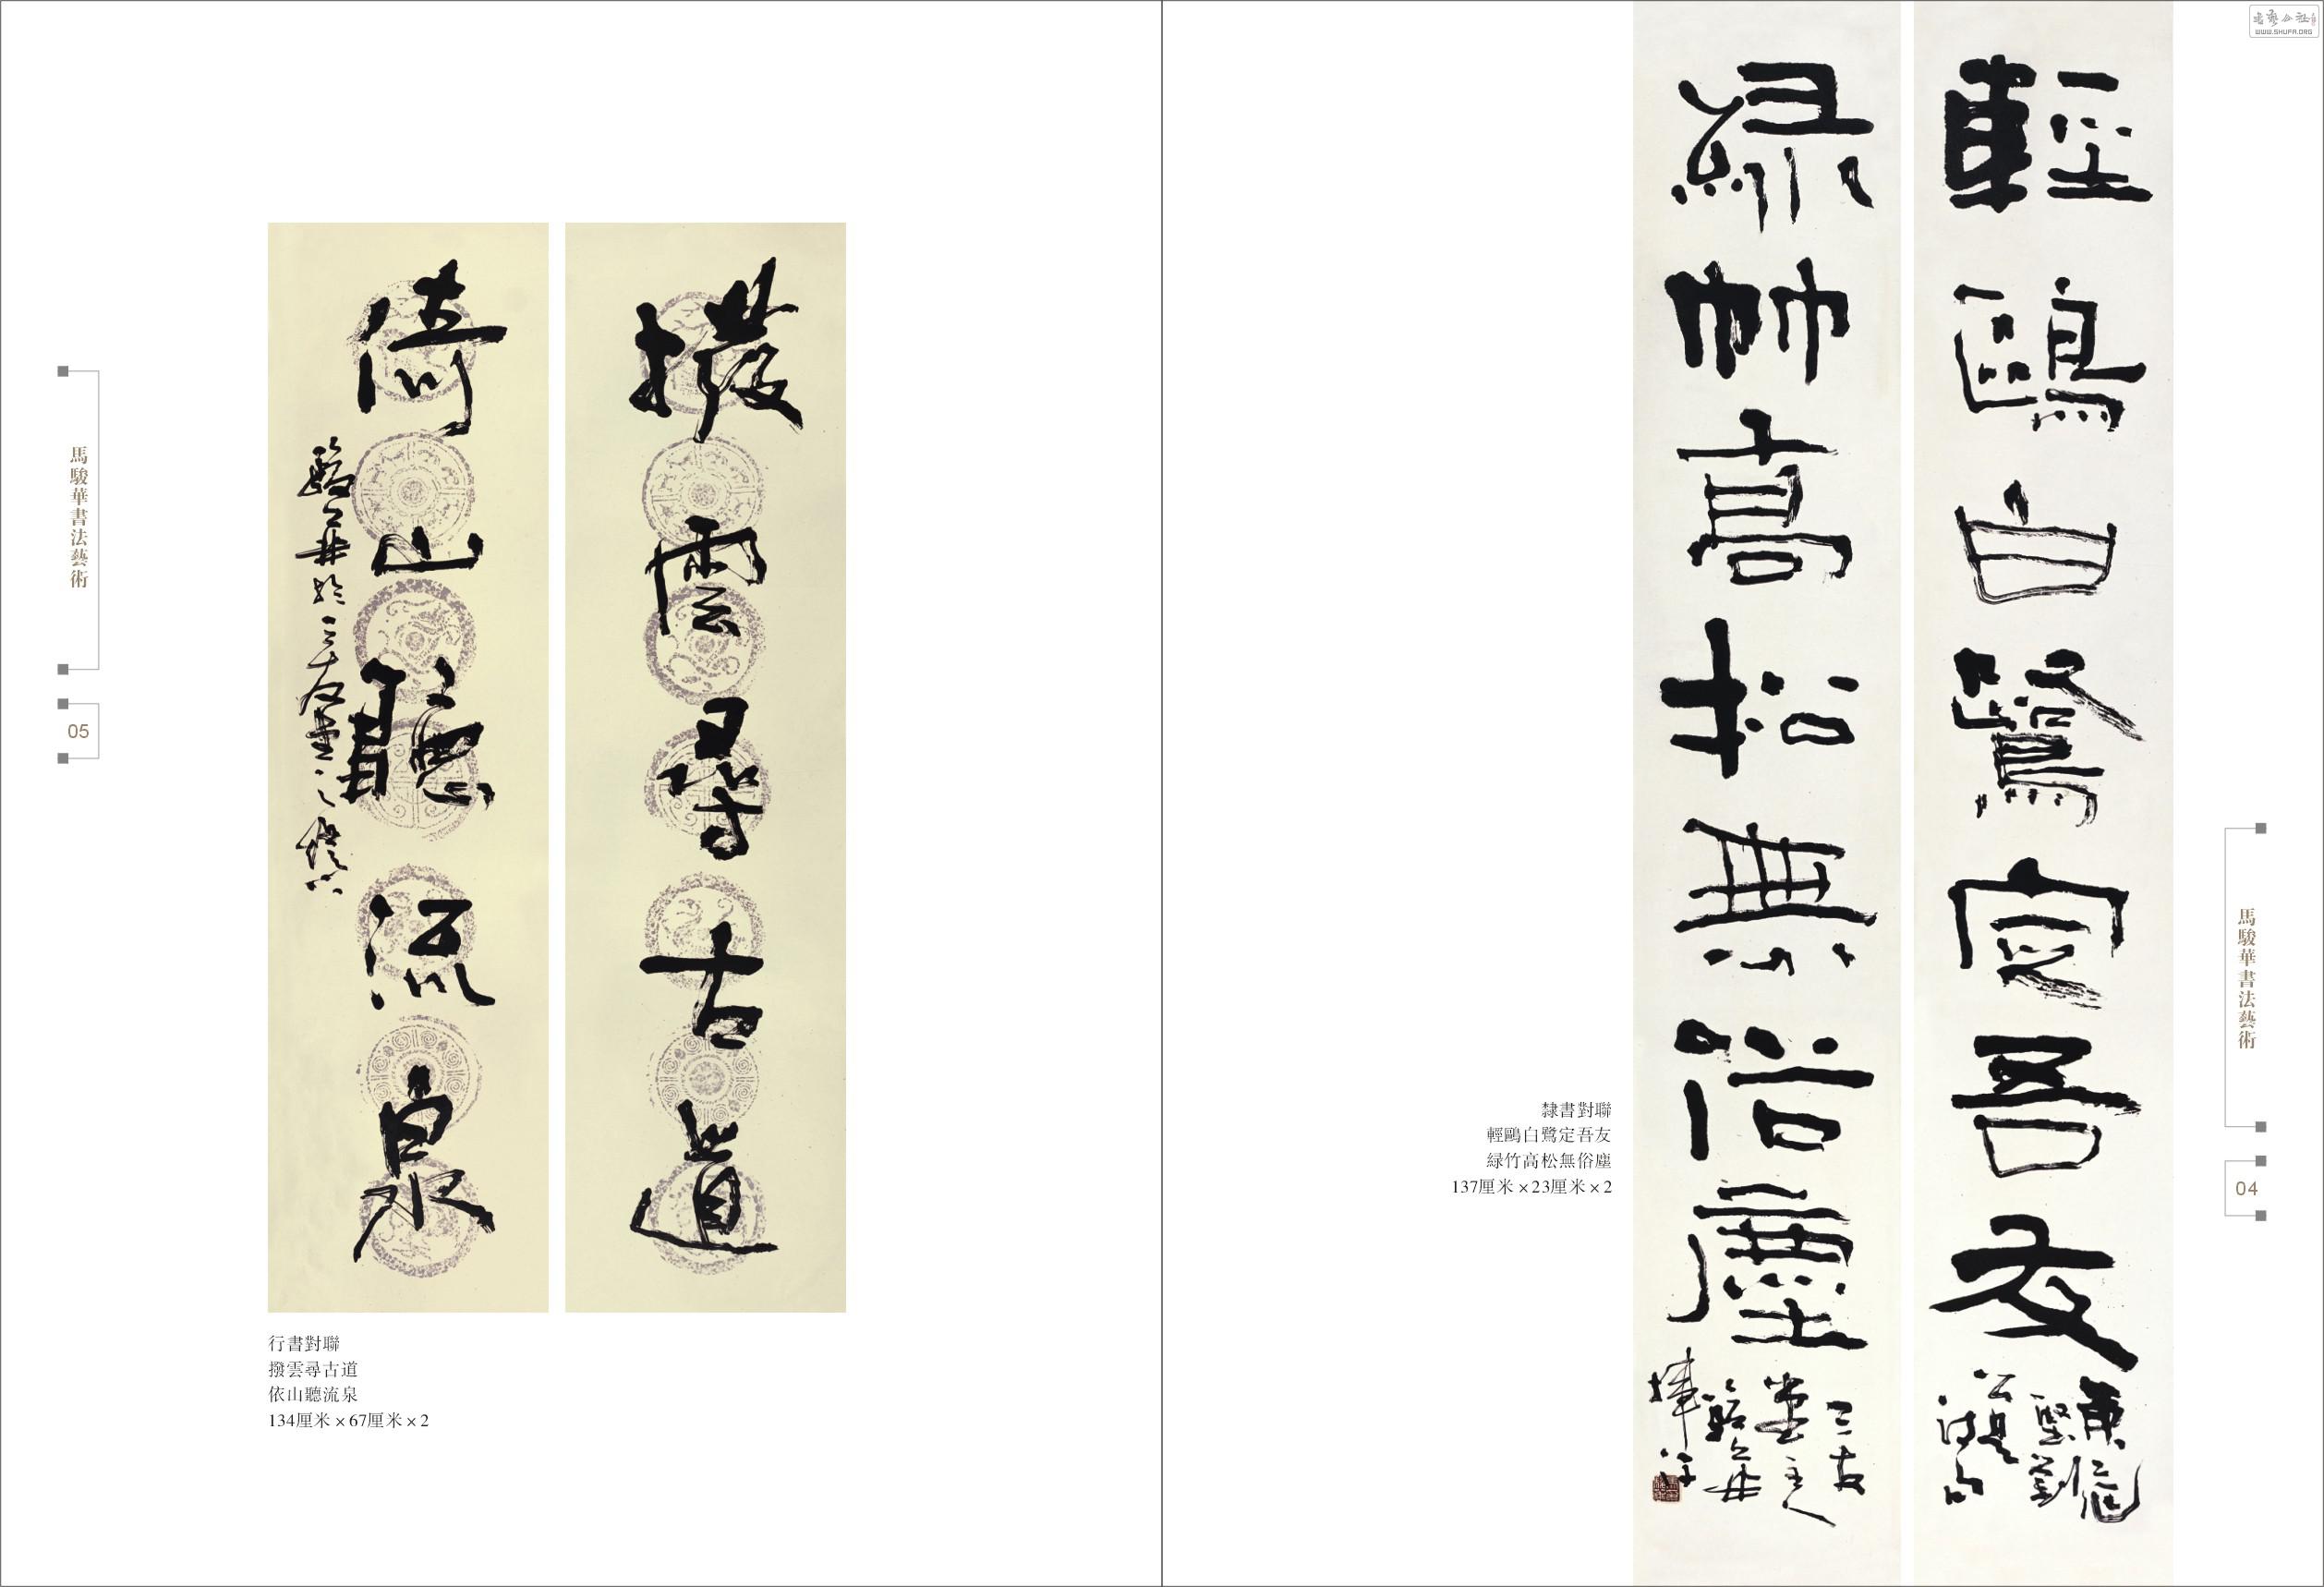 WWW.SHUFA.ORG
輕鷗白鷺定吾友
綠竹高松無俗塵
三友
堂主人
駿華
揮汗
隸書對聯
輕鷗白鷺定吾友
緑竹高松無俗塵
137厘米×23厘米×2
馬駿華書法藝術
04
撥雲尋古道
倚山聽流泉
駿華於三友堂之燈下
行書對聯
撥雲尋古道
依山聽流泉
134厘米×67厘米×2
馬駿華書法藝術
05